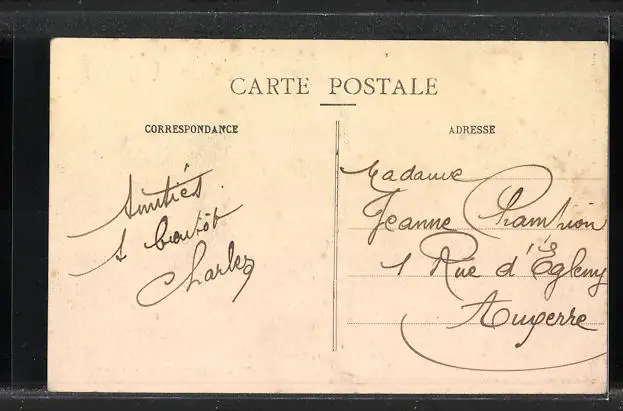 CARTE POSTALE
CORRESPONDANCE
ADRESSE
Amitiés
à bientôt
Charles
Madame
Jeanne Champion
1 Rue d'Égleny
Auxerre